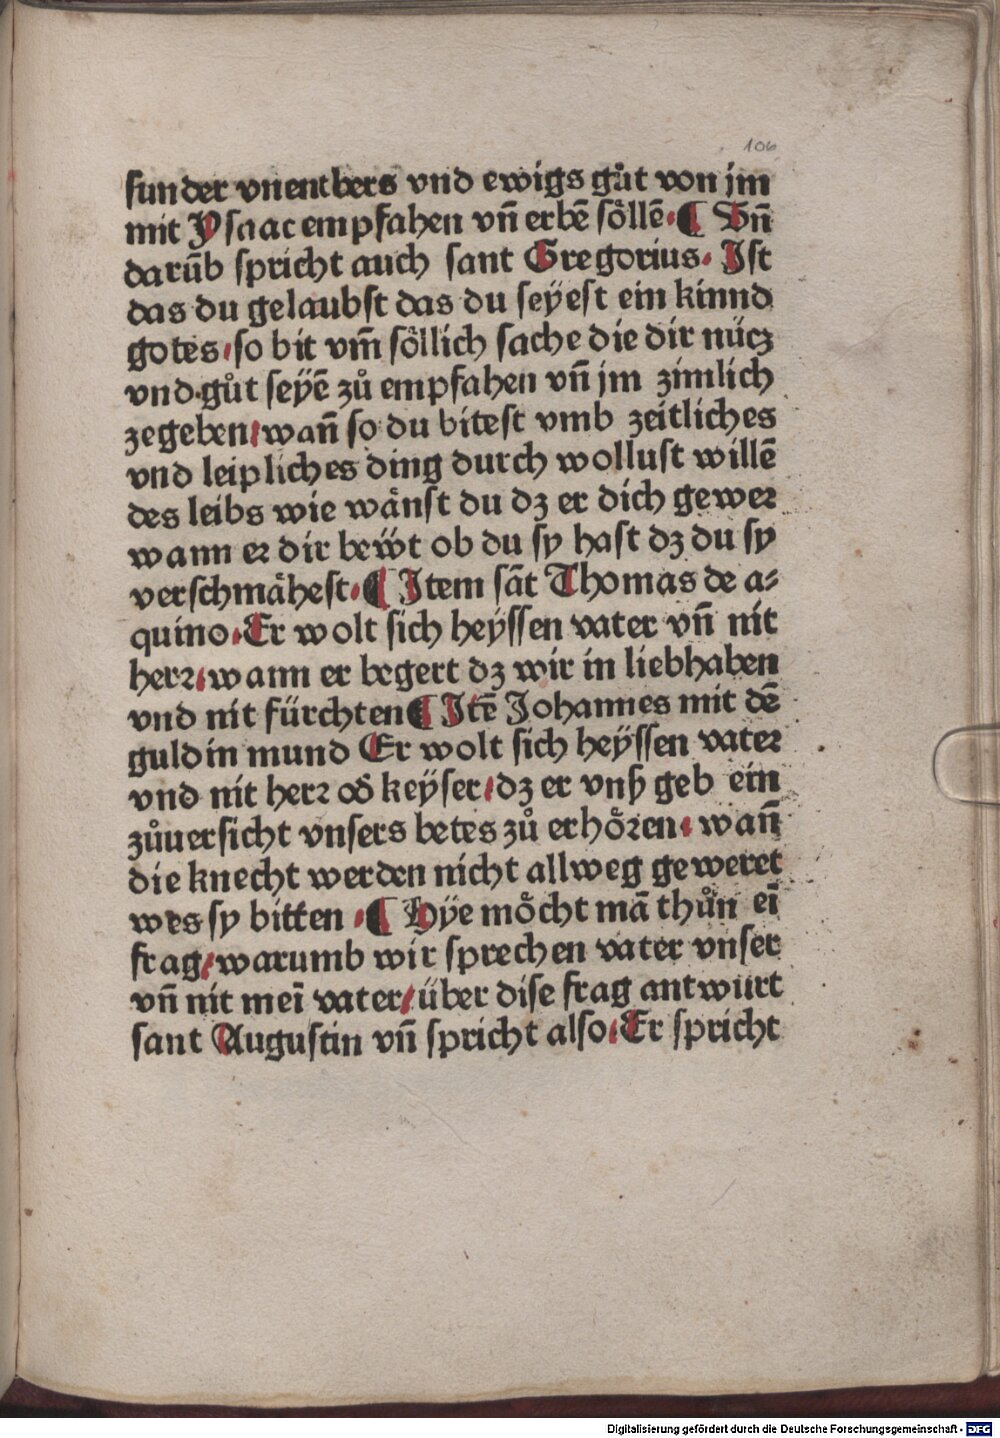 106
sunder vnentbers vnd ewigs gůt von jm
mit Ysaac empfahen vn̄ erbē sȍllē. ¶ Vn̄
darūb spricht auch sant Gregorius. Ist
das du gelaubst das du seÿest ein kinnd
gotes / so bit vm̄ sȍllich sache die dir nücz
vnd gůt seÿē zů empfahen vn̄ jm zimlich
zegeben / wan̄ so du bitest vmb zeitliches
vnd leipliches ding durch wollust willē
des leibs wie wänst du dz er dich gewer
wann er dir beẅt ob du sy hast dz du sy
verschmähest. ¶ Item sāt Thomas de a⸗
quino. Er wolt sich heÿssen vater vn̄ nit
herr / wann er begert dz wir in liebhaben
vnd nit fürchten ¶ Itē Johannes mit dē
guldin mund Er wolt sich heÿssen vater
vnd nit herr od̄ keÿser / dz er vnß geb ein
zůuersicht vnsers betes zů erhȍren. wan̄
die knecht werden nicht allweg geweret
wes sy bitten. ¶ Hÿe mȍcht mā thůn eī
frag / warumb wir sprechen vater vnser
vn̄ nit meī vater / über dise frag antwurt
sant Augustin vn̄ spricht also. Er spricht
Digitalisierung gefördert durch die Deutsche Forschungsgemeinschaft - DFG